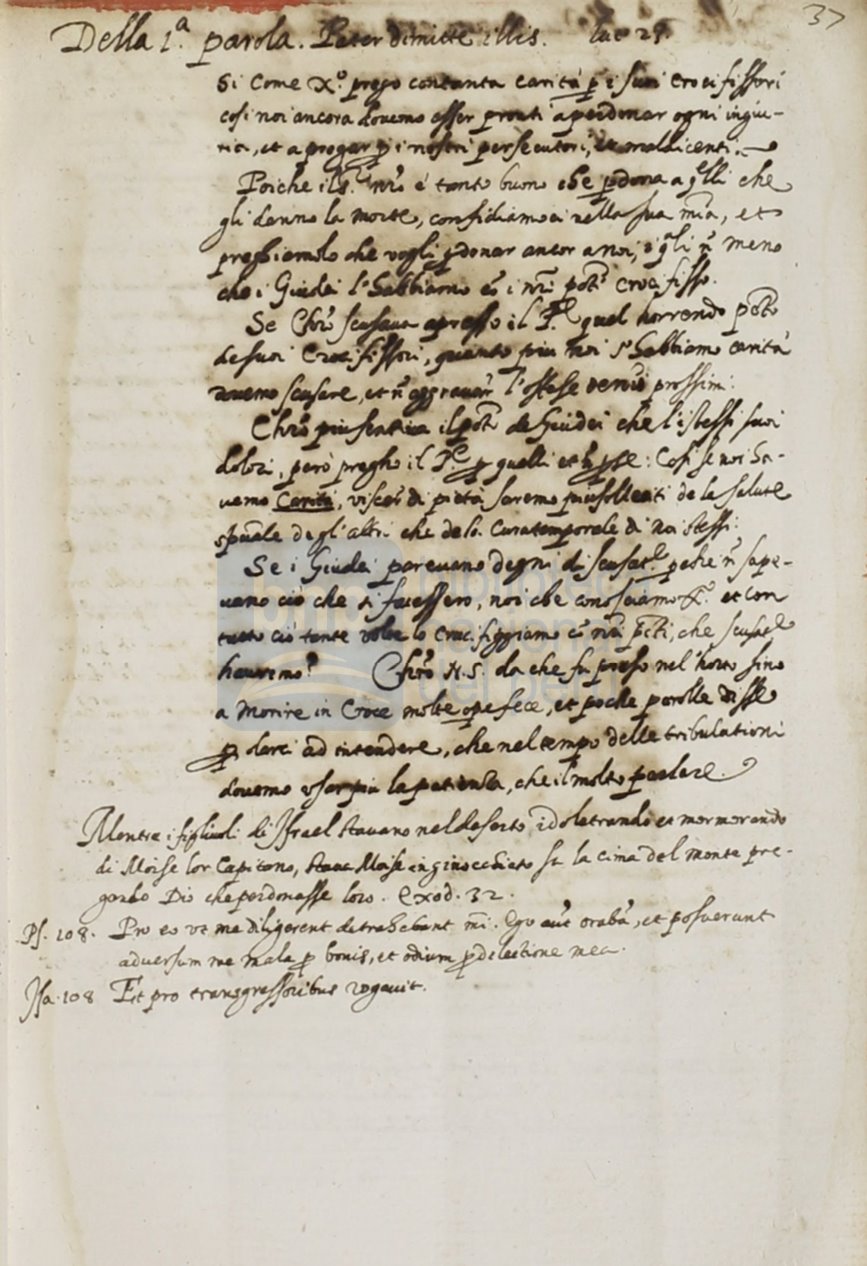 37
Della 1.ª parola. Pater dimitte illis. Luc 23
Si come Xº prego con tanta carità p i suoi Crocifissori
cosi noi ancora dovemo esser pronti a perdonar ogni ingiu-
ria, et a pregar p i nostri persecutori, et maldicenti.
Poiche il S.r nro è tanto buono che pdona a qlli che
gli danno la morte, confidiamoci nella sua mia, et
preghiamolo che vogli pdonar ancor a noi, i qli nº meno
che i Giudei l'habbiamo cº i nri pcti crocifisso.
Se Chro scusava apresso il P.e quel horrendo pcto
de suoi Crocifissori, quanto piu noi s'habbiamo carità
dovemo scusare, et nº aggravar l'offese de nri prossimi.
Chro piu sentiva il pcto de Giudei che l'istessi suoi
dolori, però pregho il P.e p quelli et nº p se: Cosi se noi ha-
vemo Carità, viscere di pietà saremo piu solleciti de la salute
spuale degl'altri che de la cura temporale di noi stessi.
Se i Giudei parevano degni di scusat.e pche nº sape-
vano ciò che si facessero, noi che conosciamo X.º et con
tutto ciò tante volte lo Crucifiggiamo cº nri pcti, che scusat.e
haveremo? Chro N.S. da che fu preso nel horto sino
a morire in Croce molte ope fece, et poche parolle disse
p darci ad intendere, che nel tempo delle tribulationi
dovemo usar piu la patienza, che il molto parlare.
Mentre i figliuoli di Israel stavano nel deserto idolatrando et mormorando
di Moise lor Capitano, stava Moise inginocchiato su la cima del monte pre-
gando Dio che perdonasse loro. Exod. 32.
Ps. 108. Pro eo ut me diligerent detrahebant mi. Ego aut orabā, et posuerunt
adversum me mala p bonis, et odium p delectione mea.
Isa. 108 Et pro transgressoribus rogavit.